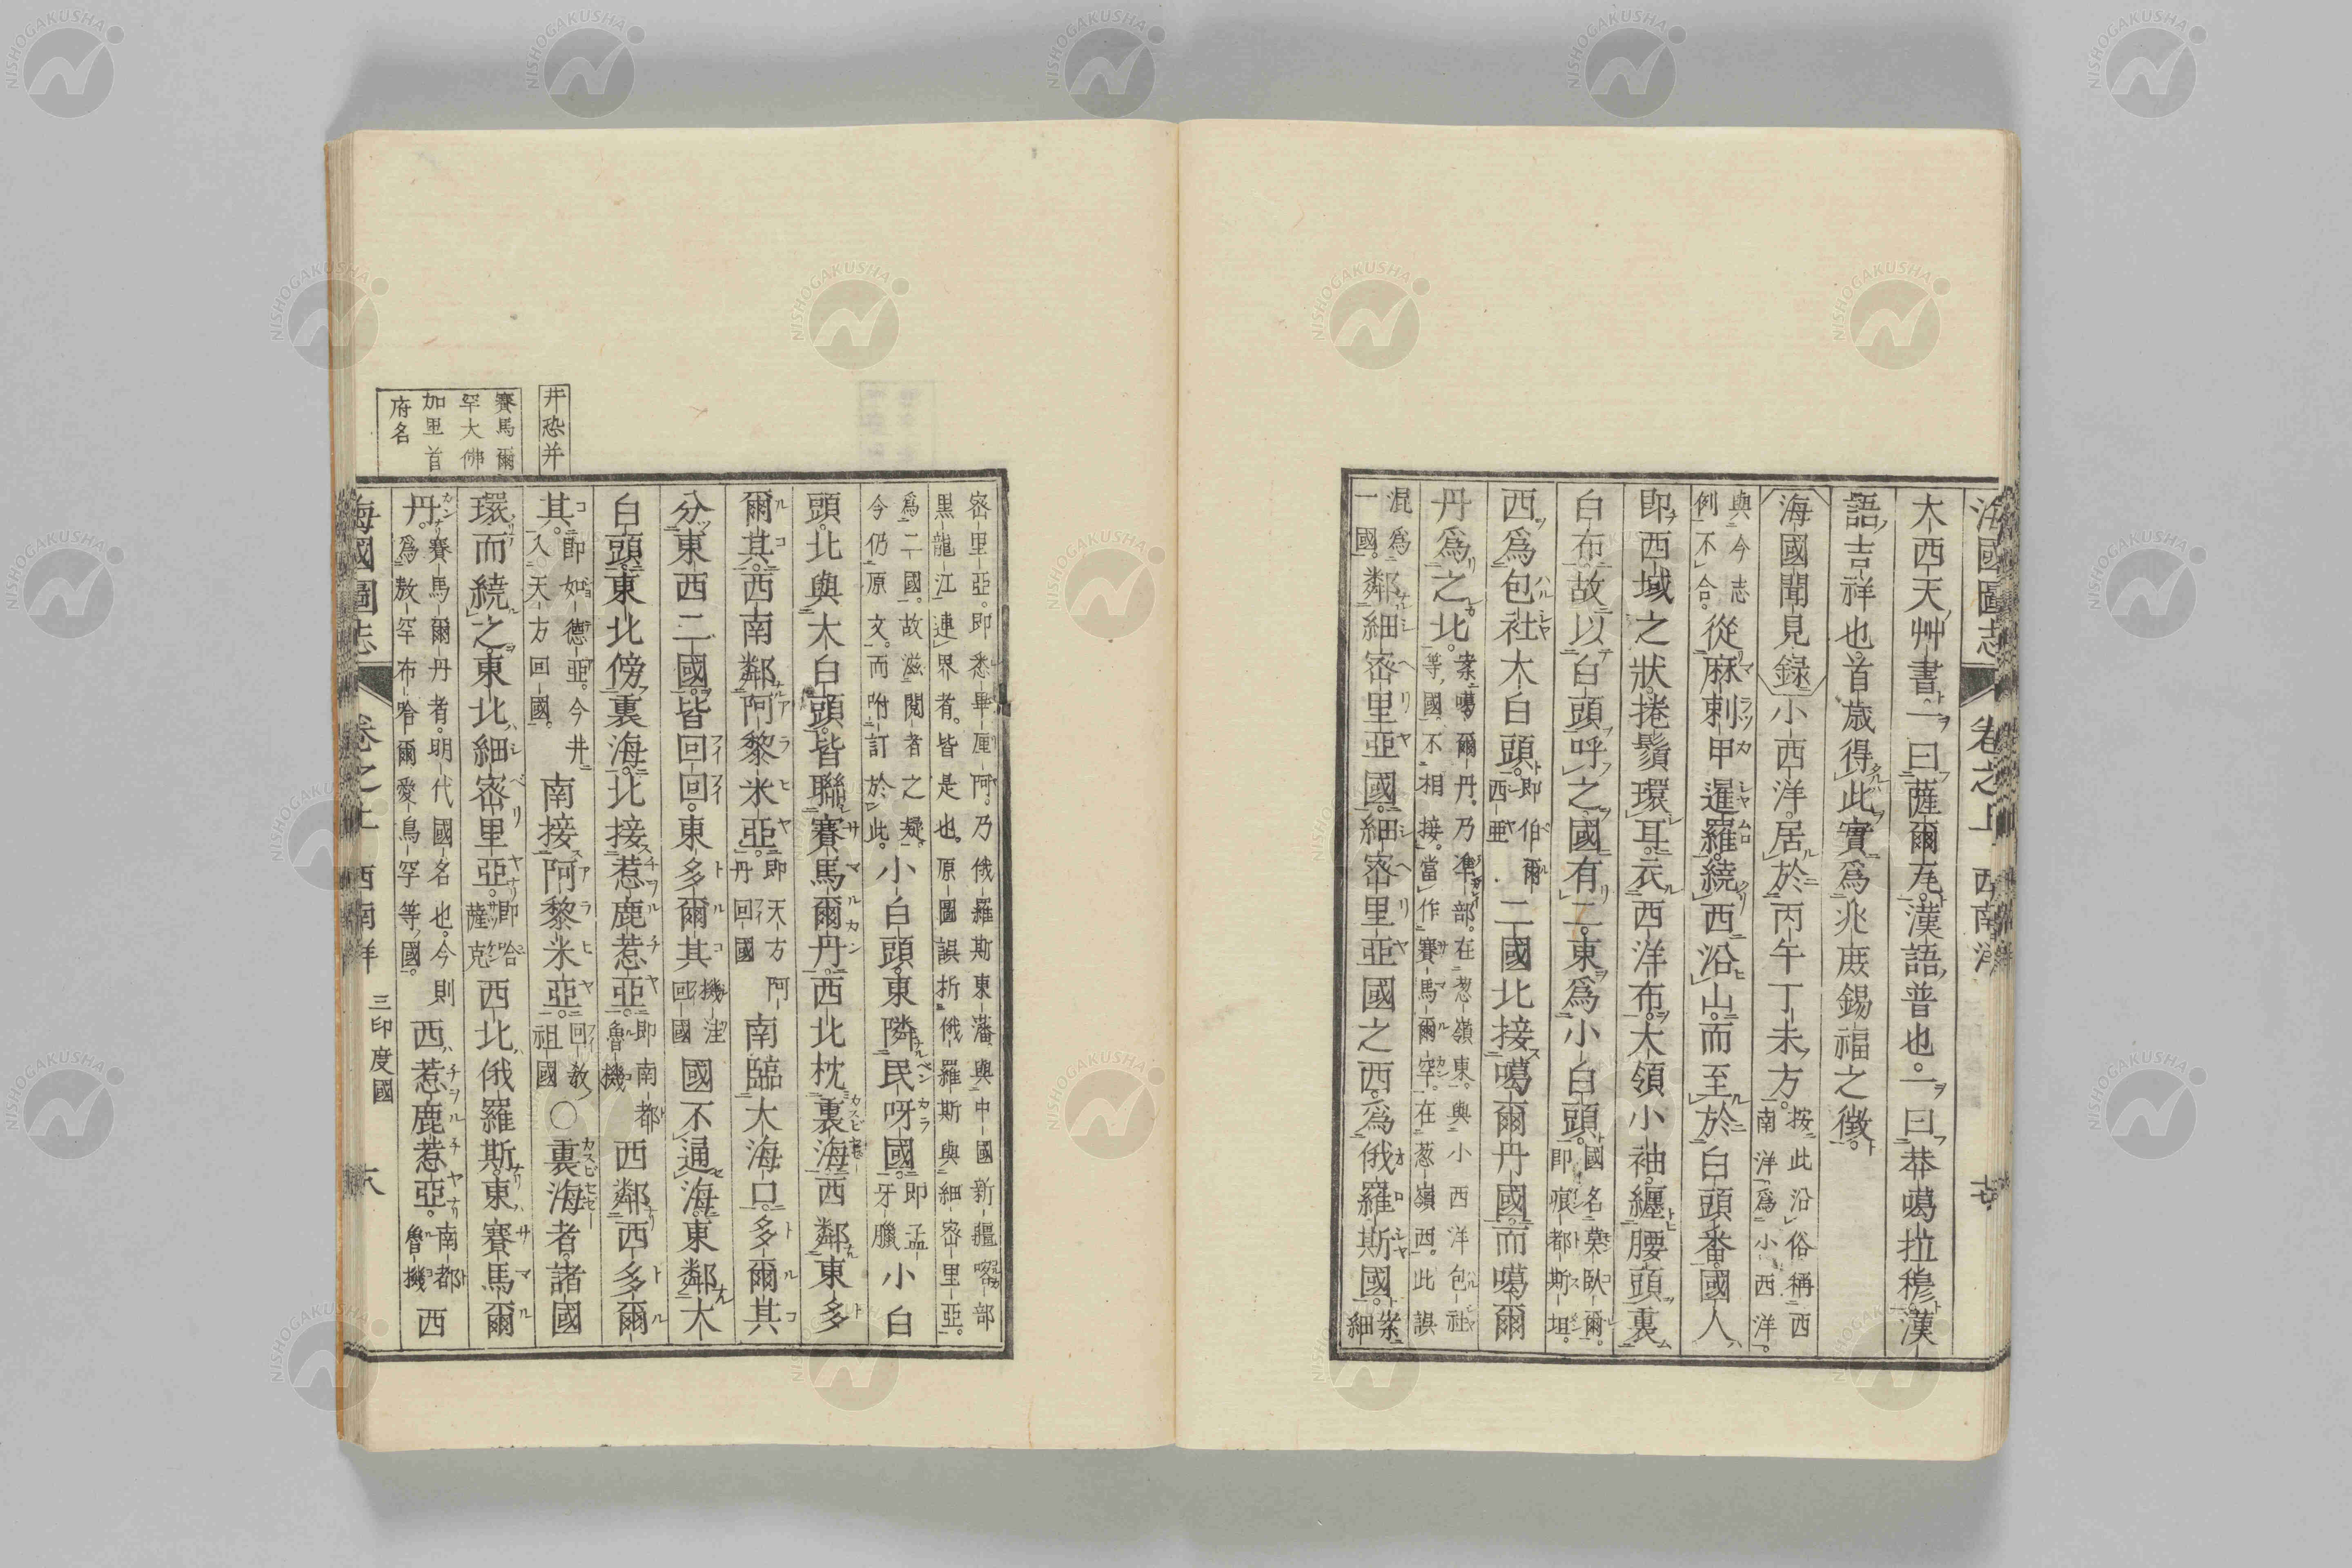 海國圖志 卷之上 西南洋 七
大西天艸書一曰薩爾尾漢語普也一曰恭噶拉穆漢
語吉祥也首歲得此實爲兆庶錫福之徵
海國聞見録小西洋居於丙午丁未方按此沿俗稱西南洋爲小西洋
與今志例不合從麻剌甲暹羅繞西沿山而至於白頭番國人
即西域之狀捲鬚環耳衣西洋布大領小袖纏腰頭裏
白布故以白頭呼之國有二東爲小白頭國名莫臥爾即痕都斯坦
西爲包社大白頭即伯爾西亜二國北接噶爾丹國而噶爾
丹爲之北案噶爾丹乃準部在葱嶺東與小西洋包社等國不相接當作賽馬爾罕在葱嶺西此誤
混爲一國鄰細密里亞國細密里亞國之西爲俄羅斯國案細
密里亞即悉畢厘阿乃俄羅斯東藩與中國新疆喀部
黒龍江連界者皆是也原圖誤折俄羅斯與細密里亞
爲二國故滋閲者之疑今仍原文而附訂於此小白頭東隣民呀國即孟牙臘小白
頭北與大白頭皆聯賽馬爾丹西北枕裏海西鄰東多
爾其西南鄰阿黎米亞即天方阿丹回國南臨大海口多爾其
分東西二國皆回回東多爾其機洼回國國不通海東鄰大
白頭東北傍裏海北接惹鹿惹亞即南都魯機西鄰西多爾
其即如德亞今井入天方回國南接阿黎米亞回教祖國〇裏海者諸國
環而繞之東北細密里亞即哈薩克西北俄羅斯東賽馬爾
丹賽馬爾丹者明代國名也今則爲敖罕布哈爾愛烏罕等國西惹鹿惹亞南都魯機西
海國圖志 卷之上 西南洋 三印度國 八
井恐并
賽馬爾
罕大佛
加里首
府名